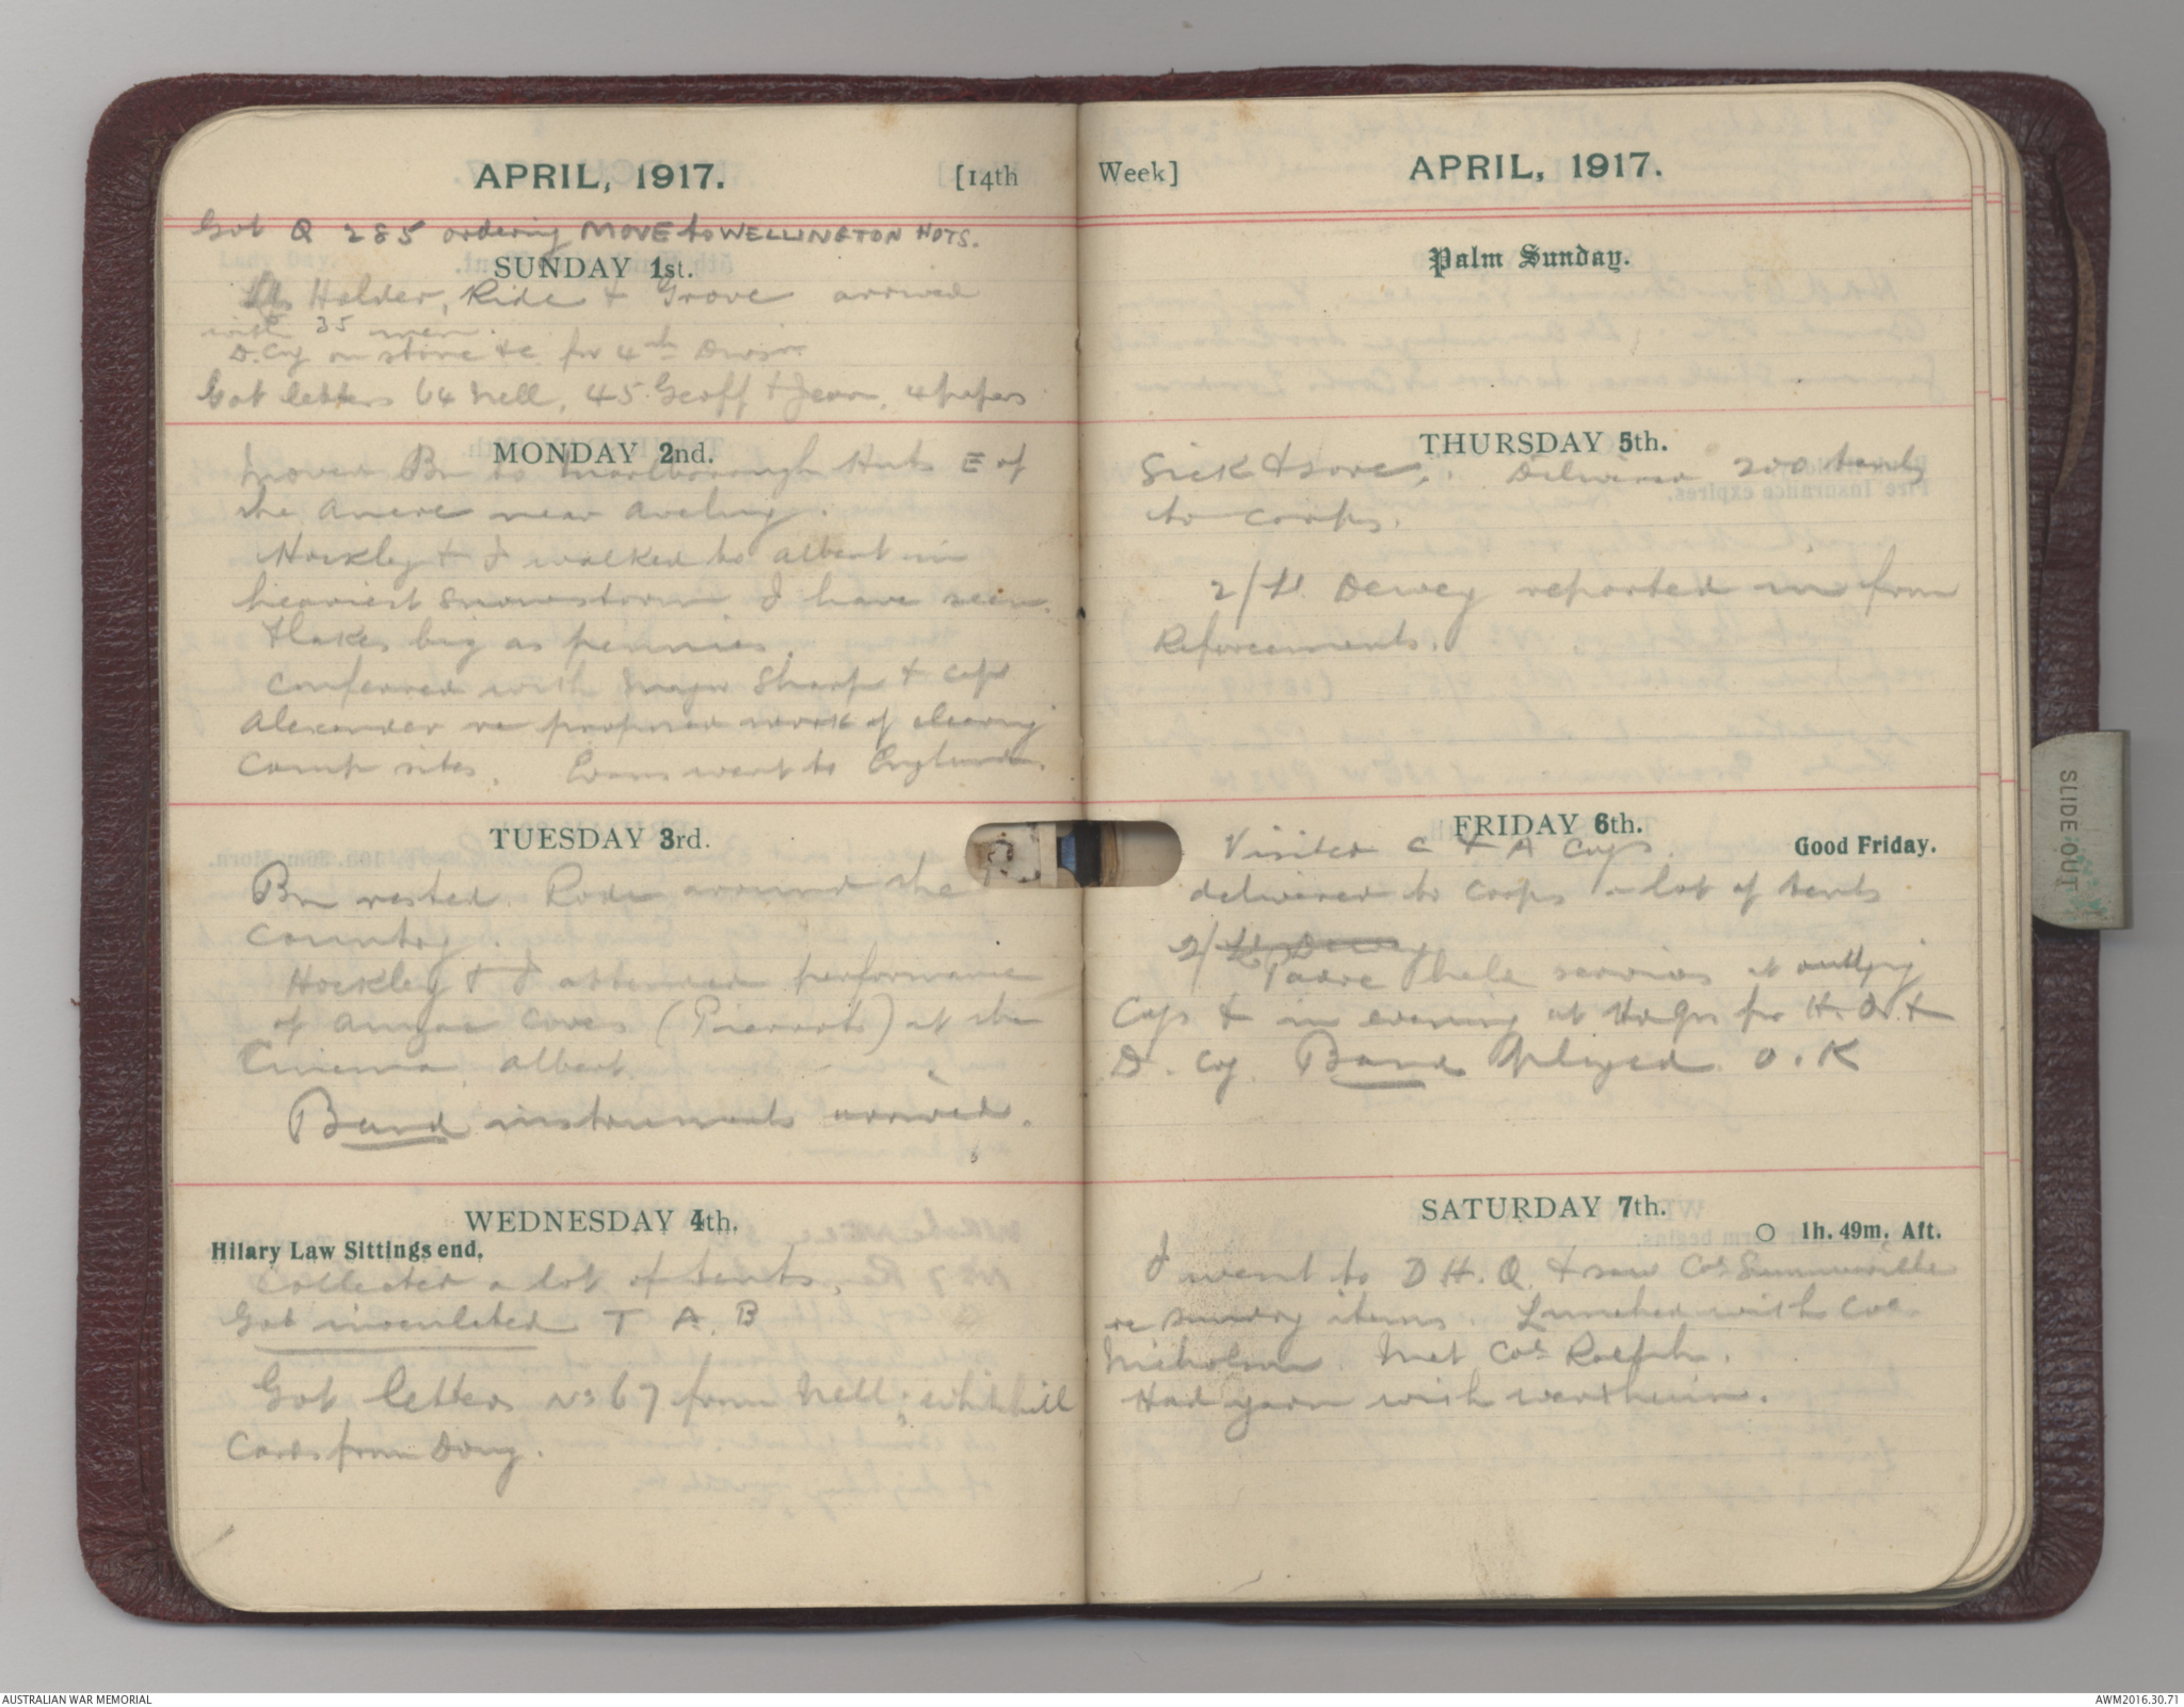 APRIL, 1917. [14th
Got Q 285 ordering MOVE to WELLINGTON HUTS.
SUNDAY 1st.
Lts Holder, Ride & Grove arrived
with 35 men.
D. Coy on stone &c for 4th Division
Got letters 64 Nell, 45 Geoff & Jean, 4 papers
MONDAY 2nd.
Moved Bn to Marlborough Huts E of
the Ancre near Aveluy.
Hockley & I walked to Albert in
heaviest snowstorm I have seen.
Flakes big as pennies.
Conferred with Major Sharp & Capt
Alexander re proposed work of clearing
camp sites. Evans went to England.
TUESDAY 3rd.
Bn rested. Rode around the
Country.
Hockley & I attended performance
of Anzac Coves (Pierrots) at the
Cinema Albert.
Band instruments arrived.
WEDNESDAY 4th.
Hilary Law Sittings end.
Collected a lot of tents.
Got inoculated T A. B
Got letters No 67 from Nell; Whitehill
Card from Doug.
Week] APRIL, 1917.
Palm Sunday.
THURSDAY 5th.
Sick & sore. Delivered 200 tents
to Corps.
2/Lt. Dewey reported in from
Reforcements.
FRIDAY 6th.
Good Friday.
Visited C & A Coys.
delivered to Corps a lot of tents
2/Lt Dewey
Padre held services at outlying
Coys & in evening at HdQrs for H.Q. &
D. Coy. Band played O.K
SATURDAY 7th.
○ 1h. 49m. Aft.
I went to D H. Q. & saw Col Summerville
re sundry items. Lunched with Col.
Nicholson. Met Col Ralph.
Had yarn with Wertheim.
SLIDE OUT
AUSTRALIAN WAR MEMORIAL
AWM2016.30.71